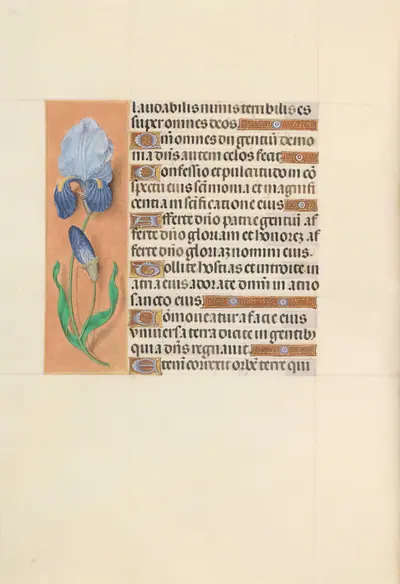 laudabilis nimis terribilis es
super omnes deos.
Qm̄ omnes dii gentiū demo
nia dn̄s autem celos fecit
Confessio et pulcritudo in cō
spectu eius scimonia et magnifi
centia in scificatione eius
Afferte dn̄o patrie gentiū af
ferte dn̄o gloriam et honorez af
ferte dn̄o gloriaz nomini eius.
Tollite hostias et introite in
atria eius adorate dn̄m in atrio
sancto eius
Cōmoneatur a facie eius
vniuersa terra dicite in gentibȝ
quia dn̄s regnauit
Etenī correxit orbē terre qui